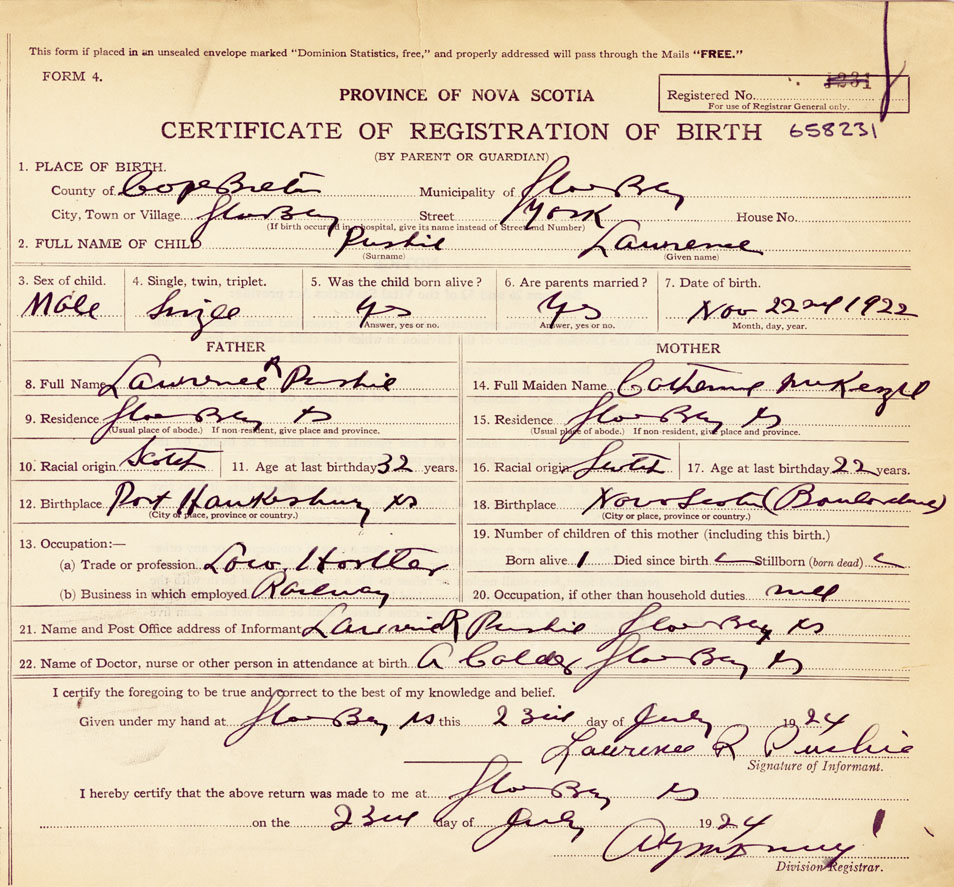 This form if placed in an unsealed envelope marked "Dominion Statistics, free," and properly addressed will pass through the Mails "FREE."
FORM 4.
PROVINCE OF NOVA SCOTIA
Registered No. 1231
For use of Registrar General only.
CERTIFICATE OF REGISTRATION OF BIRTH 658231
(BY PARENT OR GUARDIAN)
1. PLACE OF BIRTH.
County of Cape Breton Municipality of Glace Bay
City, Town or Village Glace Bay Street York House No.
(If birth occurred in a hospital, give its name instead of Street and Number)
2. FULL NAME OF CHILD Pushie Lawrence
(Surname) (Given name)
3. Sex of child. 4. Single, twin, triplet. 5. Was the child born alive? 6. Are parents married? 7. Date of birth.
Male Single Yes Yes Nov 22nd 1922
Answer, yes or no. Answer, yes or no. Month, day, year.
FATHER MOTHER
8. Full Name Lawrence R Pushie 14. Full Maiden Name Catherine McKenzie
9. Residence Glace Bay NS 15. Residence Glace Bay NS
(Usual place of abode.) If non-resident, give place and province. (Usual place of abode.) If non-resident, give place and province.
10. Racial origin Scotch 11. Age at last birthday 32 years. 16. Racial origin Scotch 17. Age at last birthday 22 years.
12. Birthplace Port Hawkesbury NS 18. Birthplace Nova Scotia
(City or place, province or country.) (City or place, province or country.)
13. Occupation:— 19. Number of children of this mother (including this birth.)
(a) Trade or profession Loco. Hostler Born alive 1 Died since birth Stillborn (born dead)
(b) Business in which employed Railway 20. Occupation, if other than household duties
21. Name and Post Office address of Informant Lawrence R Pushie Glace Bay NS
22. Name of Doctor, nurse or other person in attendance at birth. A Calder Glace Bay NS
I certify the foregoing to be true and correct to the best of my knowledge and belief.
Given under my hand at Glace Bay NS this 23rd day of July 1924
Lawrence R Pushie
Signature of Informant.
I hereby certify that the above return was made to me at Glace Bay NS
on the 23rd day of July 1924
Division Registrar.